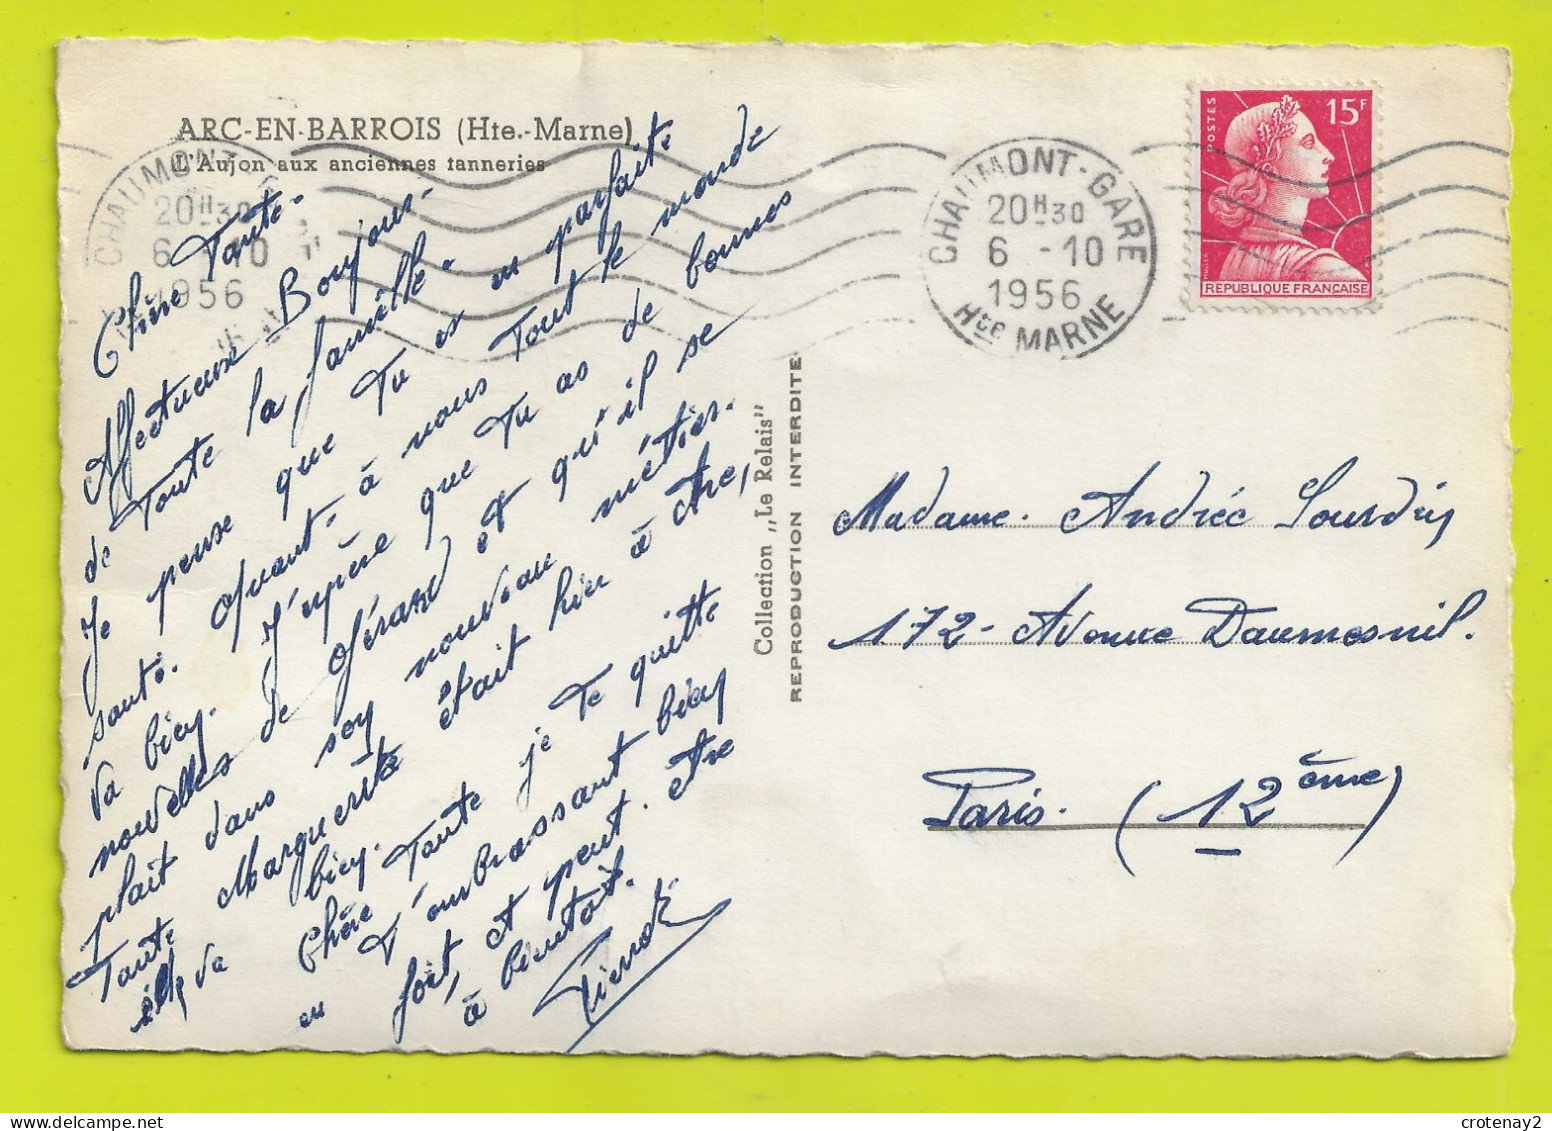 ARC-EN-BARROIS (Hte.-Marne)
L'Aujon aux anciennes tanneries
CHAUMONT-GARE
20H30
6 -10
1956
Chère Tante-
Affectueux Bonjours-
de Toute la famille.
Je pense que Tu es en parfaite
santé. Quant-à nous Tout le monde
va bien. J'espère que Tu as de bonnes
nouvelles de Gérard et qu'il se
plait dans son nouveau métier.
Tante Marguerite était hier à Arc,
elle va bien.
Chère Tante je Te quitte
en T'embrassant bien
fort, et peut-être
à bientôt.
Pierrot
Collection „Le Relais"
REPRODUCTION INTERDITE
CHAUMONT-GARE
20H30
6 -10
1956
Hte MARNE
POSTES
15F
MULLER
REPUBLIQUE FRANÇAISE
Madame. Andrée Sourdin
172- Avenue Daumesnil.
Paris. (12ème)
crotenay2